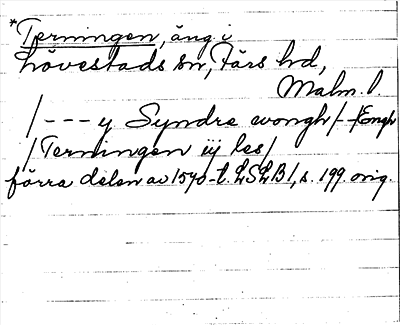 *Terningen, äng i
Lövestads sn, Färs hd,
Malm. l.
/--- y Syndre wongh/--/Engh
/Terningen iij les/
förra delen av 1570-t. LSLB1, s. 199. orig.